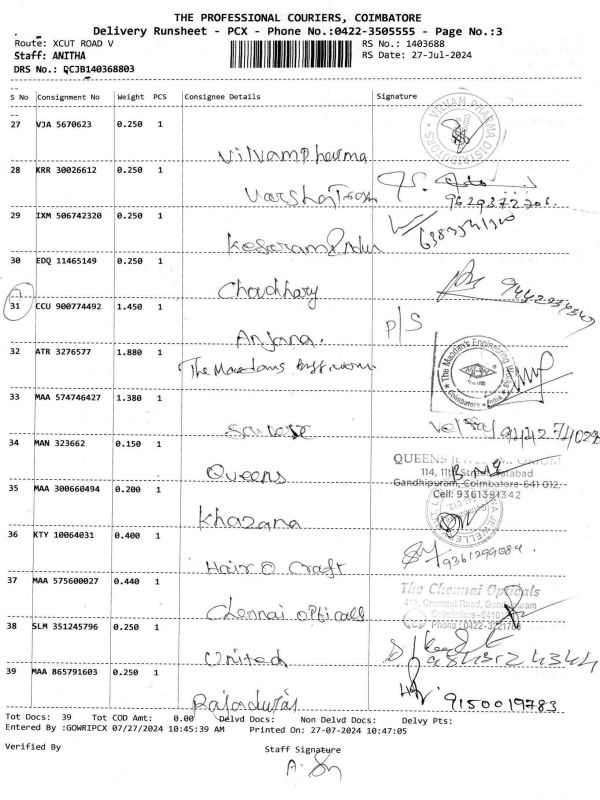 THE PROFESSIONAL COURIERS, COIMBATORE
Delivery Runsheet - PCX - Phone No.:0422-3505555 - Page No.:3
Route: XCUT ROAD V RS No.: 1403688
Staff: ANITHA RS Date: 27-Jul-2024
DRS No.: QCJB140368803
S No Consignment No Weight PCS Consignee Details Signature
27 VJA 5670623 0.250 1
Vilvam Pharma
28 KRR 30026612 0.250 1
9629372206.
29 IXM 506742320 0.250 1
30 EDQ 11465149 0.250 1
Choudhary
31 CCU 900774492 1.450 1 P/S
Anjana.
32 ATR 3276577 1.880 1
33 MAA 574746427 1.380 1
34 MAN 323662 0.150 1 QUEENS
Queens
Gandhipuram, Coimbatore-641 012.
35 MAA 300660494 0.200 1 Cell: 9361391342
Khazana
36 KTY 10064031 0.400 1
9361299089.
Hair O Craft
37 MAA 575600027 0.440 1 The Chennai Opticals
Chennai opticals
38 SLM 351245796 0.250 1
United
39 MAA 865791603 0.250 1
9150019783
Tot Docs: 39 Tot COD Amt: 0.00 Delvd Docs: Non Delvd Docs: Delvy Pts:
Entered By :GOWRIPCX 07/27/2024 10:45:39 AM Printed On: 27-07-2024 10:47:05
Verified By Staff Signature